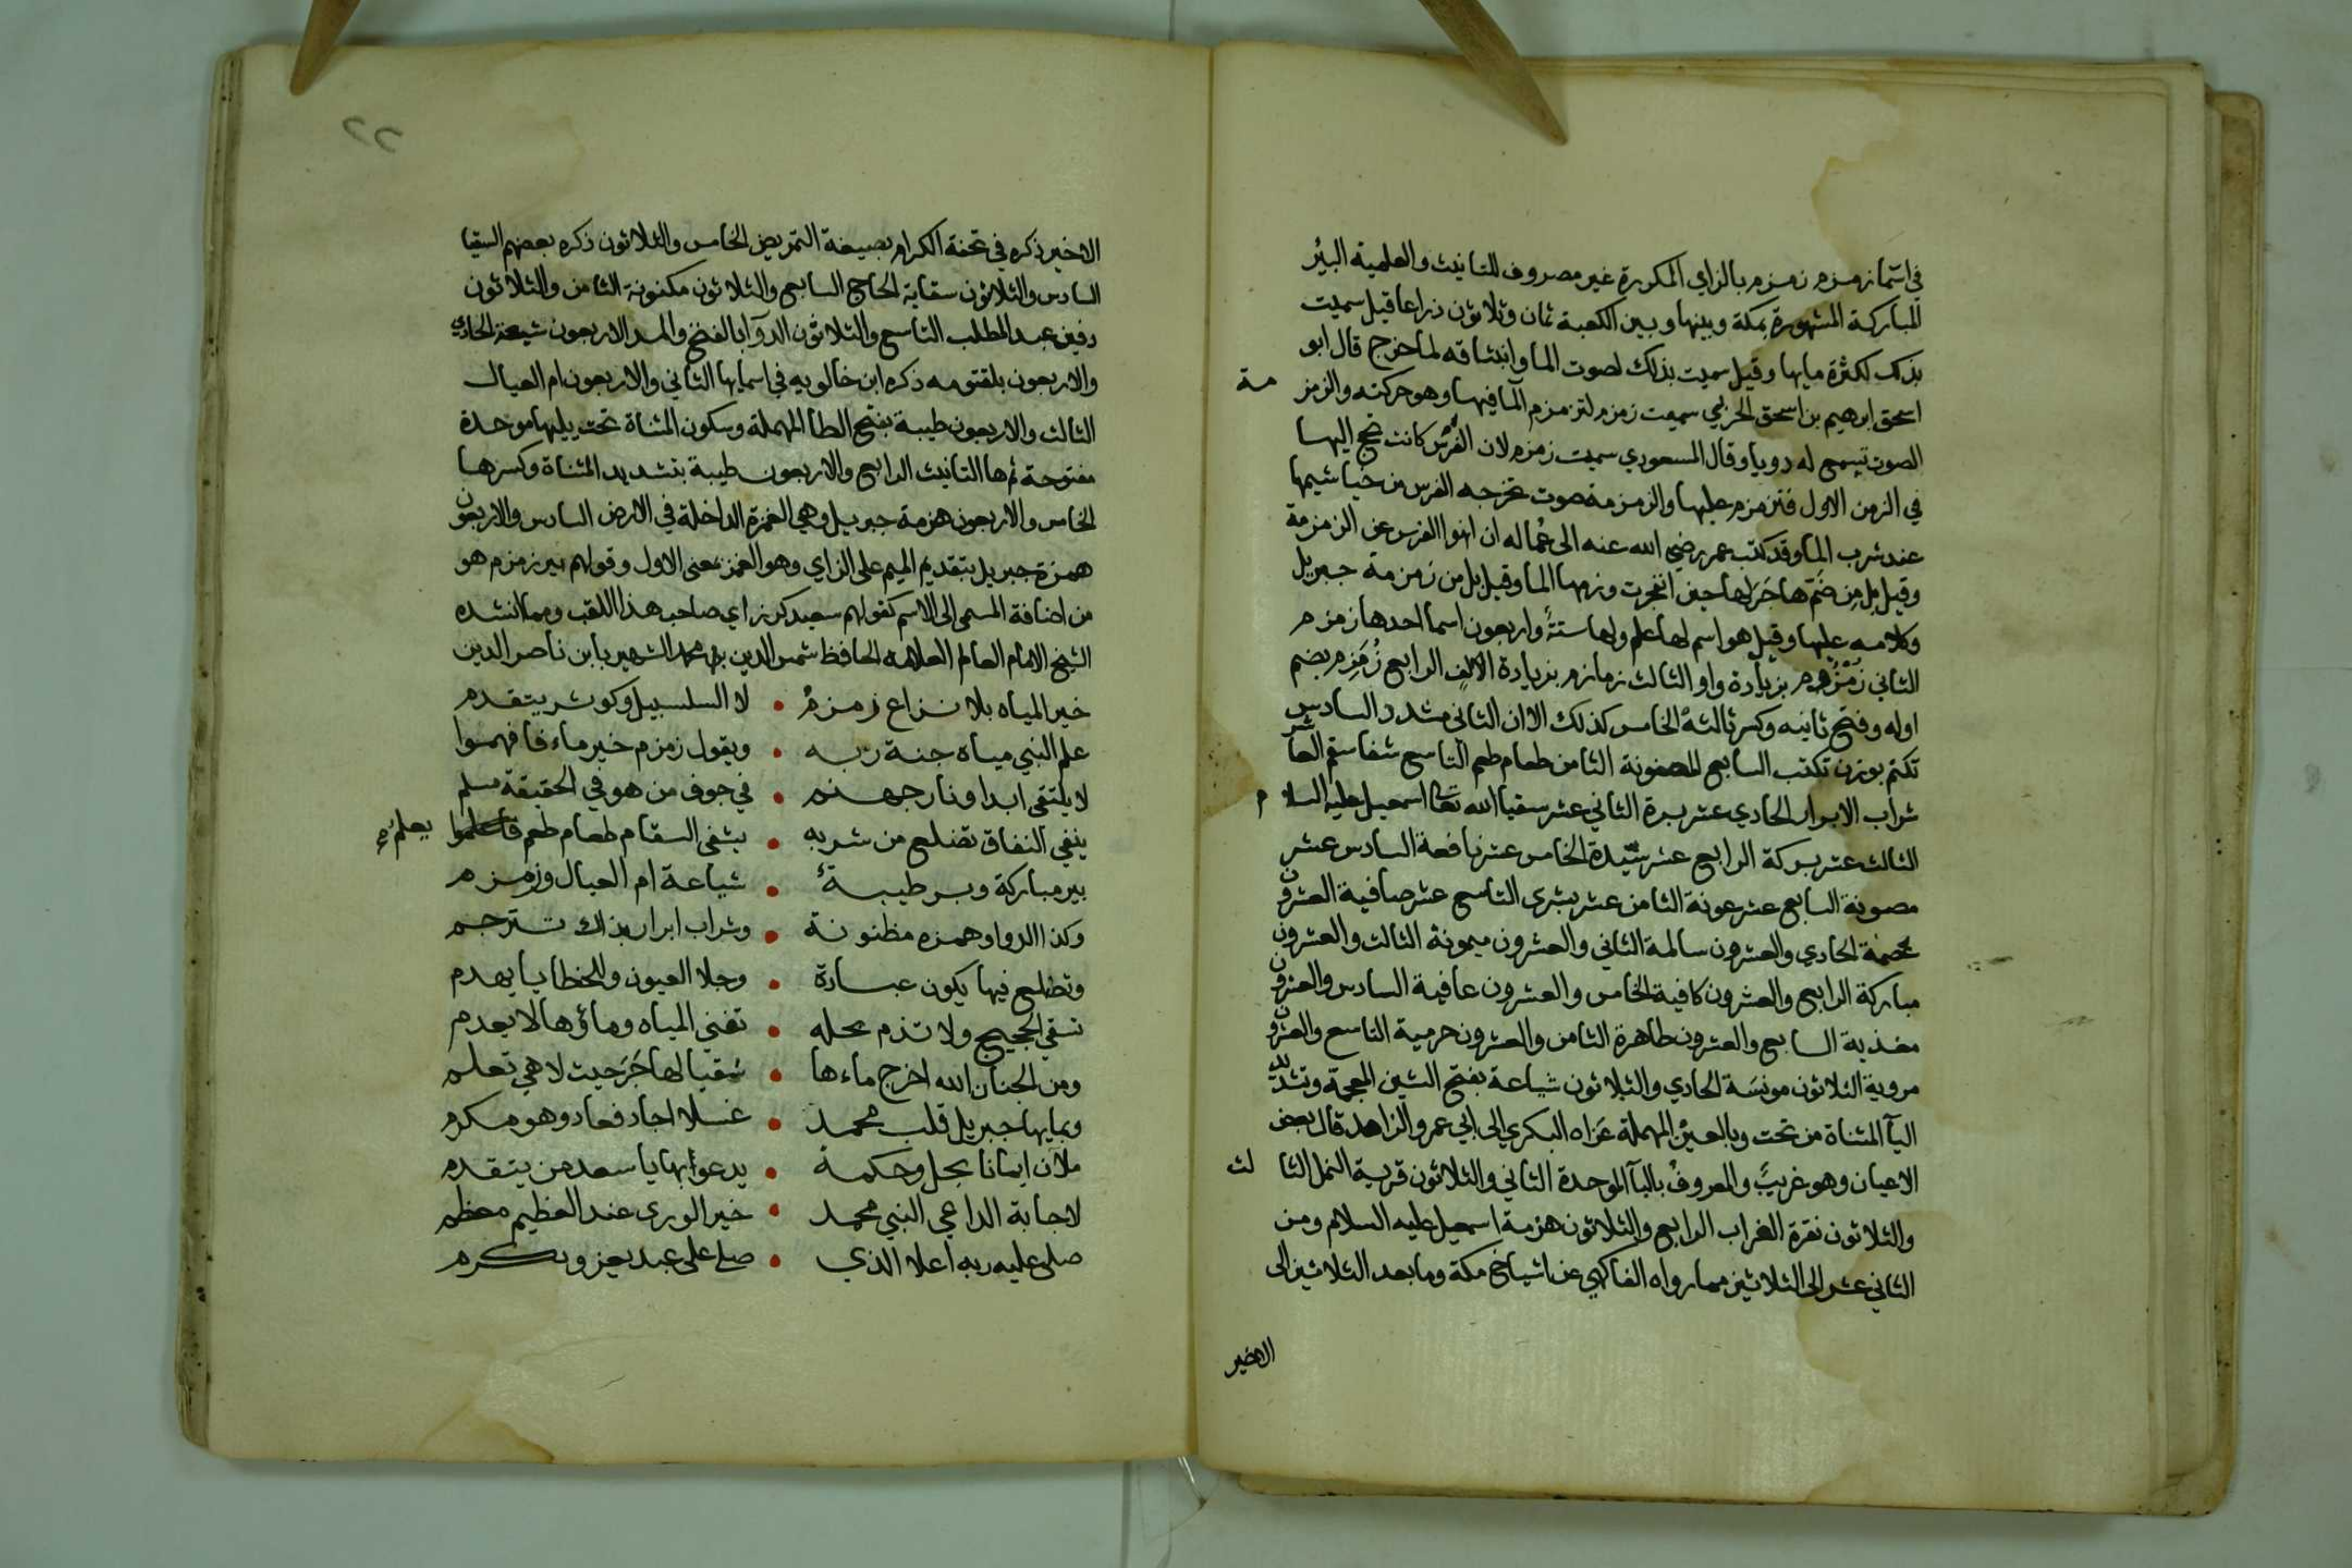 في اسما زمزم زمزم بالزاي المكررة غير مصروف للتانيث والعلمية البئر
المباركة المشهورة بمكة وبينها وبين الكعبة ثمان وثلاثون ذراعا قيل سميت
بذلك لكثرة مايها وقيل سميت بذلك لصوت الما وانبثاقه لما خرج قال ابو
اسحق ابرهيم بن اسحق الحربي سميت زمزم لتزمزم المآ فيها وهو حركته والزمزمة
الصوت تسمع له دويا وقال المسعودي سميت زمزم لان الفرس كانت تحج اليها
في الزمن الاول فتزمزم عليها والزمزمة صوت تخرجه الفرس من خياشيمها
عند شرب الما وقد كتب عمر رضي الله عنه الى عماله ان انهوا الفرس عن الزمزمة
وقيل بل من ضم هاجر لها حين انفجرت وزمها الما وقيل بل من زمزمة جبريل
وكلامه عليها وقيل هو اسم لها علم ولها ستة واربعون اسما احدها زمزم
الثاني زمزوم بزيادة واو الثالث زمازم بزيادة الالف الرابع زُمَزِم بضم
اوله وفتح ثانيه وكسر ثالثه الخامس كذلك الا ان الثاني مشدد السادس
تكتم بوزن تكتب السابع المضنونة الثامن طعام طعم التاسع شفا سقم العاشر
شراب الابرار الحادي عشر برة الثاني عشر سقيا الله تعالى اسمعيل عليه السلام
الثالث عشر بركة الرابع عشر سيدة الخامس عشر نافعة السادس عشر
مصونة السابع عشر عونة الثامن عشر بشرى التاسع عشر صافية العشرون
عصمة الحادي والعشرون سالمة الثاني والعشرون ميمونة الثالث والعشرون
مباركة الرابع والعشرون كافية الخامس والعشرون عافية السادس والعشرون
مغذية السابع والعشرون طاهرة الثامن والعشرون حرمية التاسع والعشرون
مروية الثلاثون مونسة الحادي والثلاثون شياعة بفتح الشين المعجمة وتشديد
اليآ المثناة من تحت وبالعين المهملة عزاه البكري الى ابي عمرو الزاهد قال بعض
الاعيان وهو غريب والمعروف بالبآ الموحدة الثاني والثلاثون قرية النمل الثالث
والثلاثون نقرة الغراب الرابع والثلاثون هزمة اسمعيل عليه السلام ومن
الثاني عشر الى الثلاثين مما رواه الفاكهي عن اشياخ مكة وما بعد الثلاثين الى
الاخير
٢٢
الاخير ذكره في تحفة الكرام بصيغة التمريض الخامس والثلاثون ذكره بعضهم السقيا
السادس والثلاثون سقاية الحاج السابع والثلاثون مكنونة الثامن والثلاثون
دفين عبد المطلب التاسع والثلاثون الدوآ بالفتح والمد الاربعون شبعة الحادي
والاربعون بلقتومه ذكره ابن خالويه في اسمايها الثاني والاربعون ام العيال
الثالث والاربعون طيبة بفتح الطا المهملة وسكون المثناة تحت يليها موحدة
مفتوحة ثم ها التانيث الرابع والاربعون طيبة بتشديد المثناة وكسرها
الخامس والاربعون هزمة جبريل وهي الغمزة الداخلة في الارض السادس والاربعون
همزة جبريل بتقديم الميم على الزاي وهو الغمز بمعنى الاول وقولهم بير زمزم هو
من اضافة المسمى الى الاسم كقولهم سعيد كرز اي صاحب هذا اللقب ومما انشده
الشيخ الامام العالم العلامة الحافظ شمس الدين محمد الشهير بابن ناصر الدين
خير المياه بلا نزاع زمزم • لا السلسبيل وكوثر يتقدم
علم النبي مياه جنة ربه • ويقول زمزم خير ماء فافهموا
لا يلتقي ابدا ونار جهنم • في جوف من هو في الحقيقة مسلم
ينفي النفاق تضلع من شربه • يشفى السقام طعام طعم فاعلموا يعلم
بير مباركة وبر طيبة • شياعة ام العيال وزمزم
وكذا الدوا وهمزه مظنونة • وشراب ابرار بذاك تترجم
وتضلع فيها يكون عبادة • وجلا العيون وللخطايا يهدم
تسقي الحجيج ولا تذم محله • تفنى المياه وماؤها لا يعدم
ومن الجنان الله اخرج ماءها • سقيا لهاجر حيث لا هي تعلم
وبمايها جبريل قلب محمد • غسلا اجاد فعاد وهو مكرم
ملآن ايمانا بجل وحكمة • يدعوا بها يا سعد من يتقدم
لاجابة الداعي النبي محمد • خير الورى عند العظيم معظم
صلى عليه ربه اعلا الذي • صلى على عبد يعز ويكرم